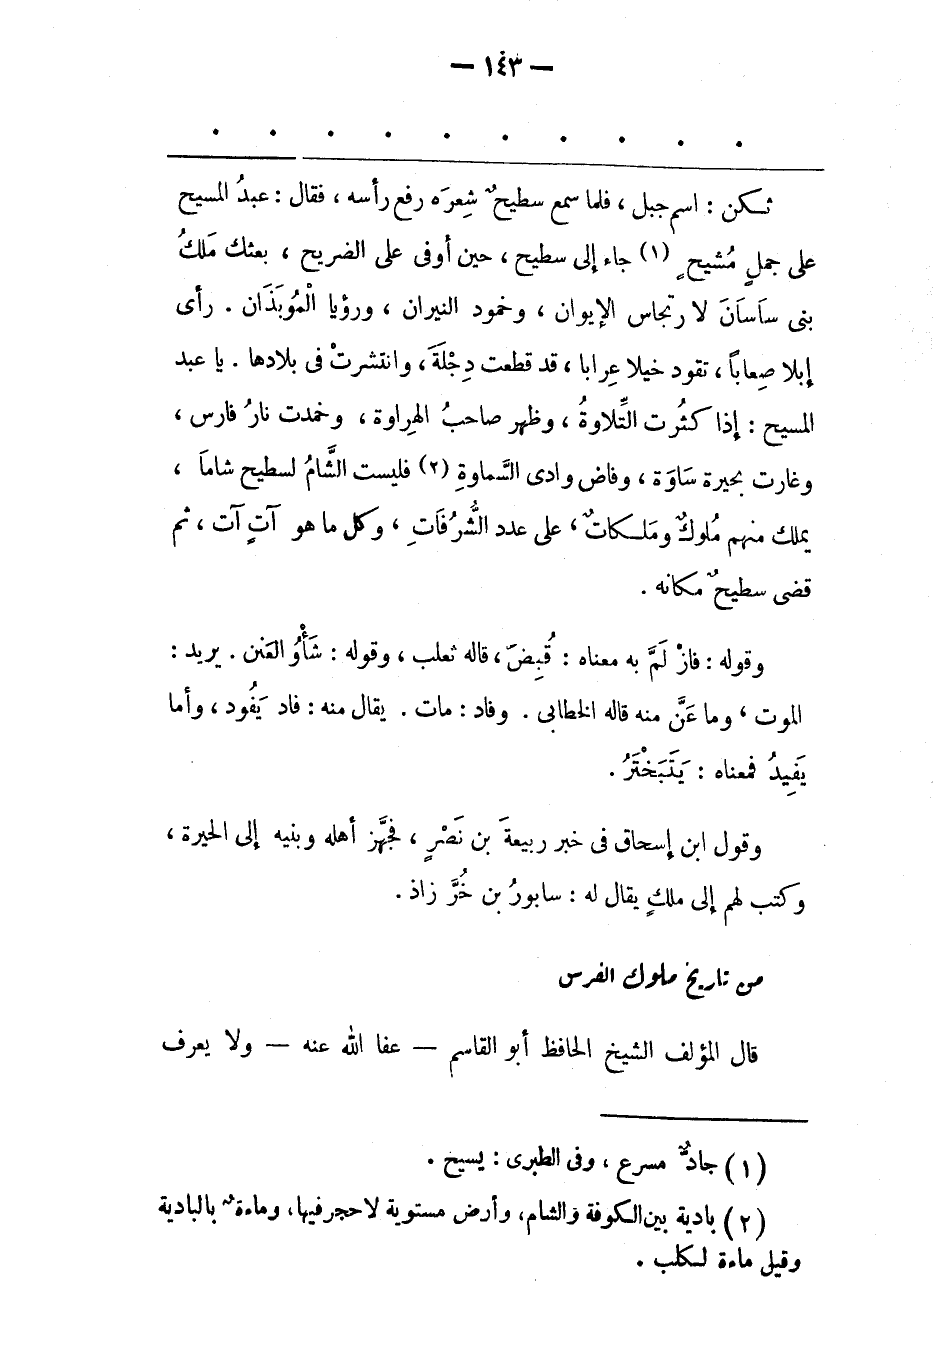 — ١٤٣ —
. . . . . . . . . .
ثـكن : اسم جبل ، فلما سمع سطيحٌ شِعرَه رفع رأسه ، فقال : عبدُ المسيح
على جملٍ مُشيحٍ (١) جاء إلى سطيح ، حين أوفى على الضريح ، بعثك مَلكُ
بنى ساَسَانَ لا رتجاس الإيوان ، وخمود النيران ، ورؤيا الْمُوبَذَان . رأى
إبلا صِعاباً ، تقود خيلا عِرابا ، قد قطعت دِجْلَةَ ، وانتشرتْ فى بلادها . يا عبد
المسيح : إذا كثُرت التِّلاوةُ ، وظهر صاحبُ الهِراوة ، وخمدت نارُ فارس ،
وغارت بحيرة سَاوَة ، وفاض وادى السَّماوةِ (٢) فليست الشَّامُ لسطيح شاماَ ،
يملك منهم مُلوكٌ ومَلـكاتٌ ، على عدد الشُّرفَاتِ ، وكل ما هو آتٍ آت ، ثم
قضى سطيحٌ مكانه .
وقوله : فازْ لَمَّ به معناه : قُبِضَ ، قاله ثعلب ، وقوله : شَأْوُ العَنن . يريد :
الموت ، وما عَنَّ منه قاله الخطابى . وفاد : مات . يقال منه : فاد يَفُود ، وأما
يَفِيدُ فمعناه : يَتَبَخْتَرُ .
وقول ابن إسحاق فى خبر ربيعةَ بن نَصْرٍ ، فجهَّز أهله وبنيه إلى الحيرة ،
وكتب لهم إلى ملكٍ يقال له : سابورُ بن خُرَّ زاذ .
من تاريخ ملوك الفرس
قال المؤلف الشيخ الحافظ أبو القاسم — عفا الله عنه — ولا يعرف
(١) جادٌّ مسرع ، وفى الطبرى : يسيخ .
(٢) بادية بين الكوفة والشام، وأرض مستوية لاحجر فيها، وماءةٌ بالبادية
وقيل ماءة لـكلب .